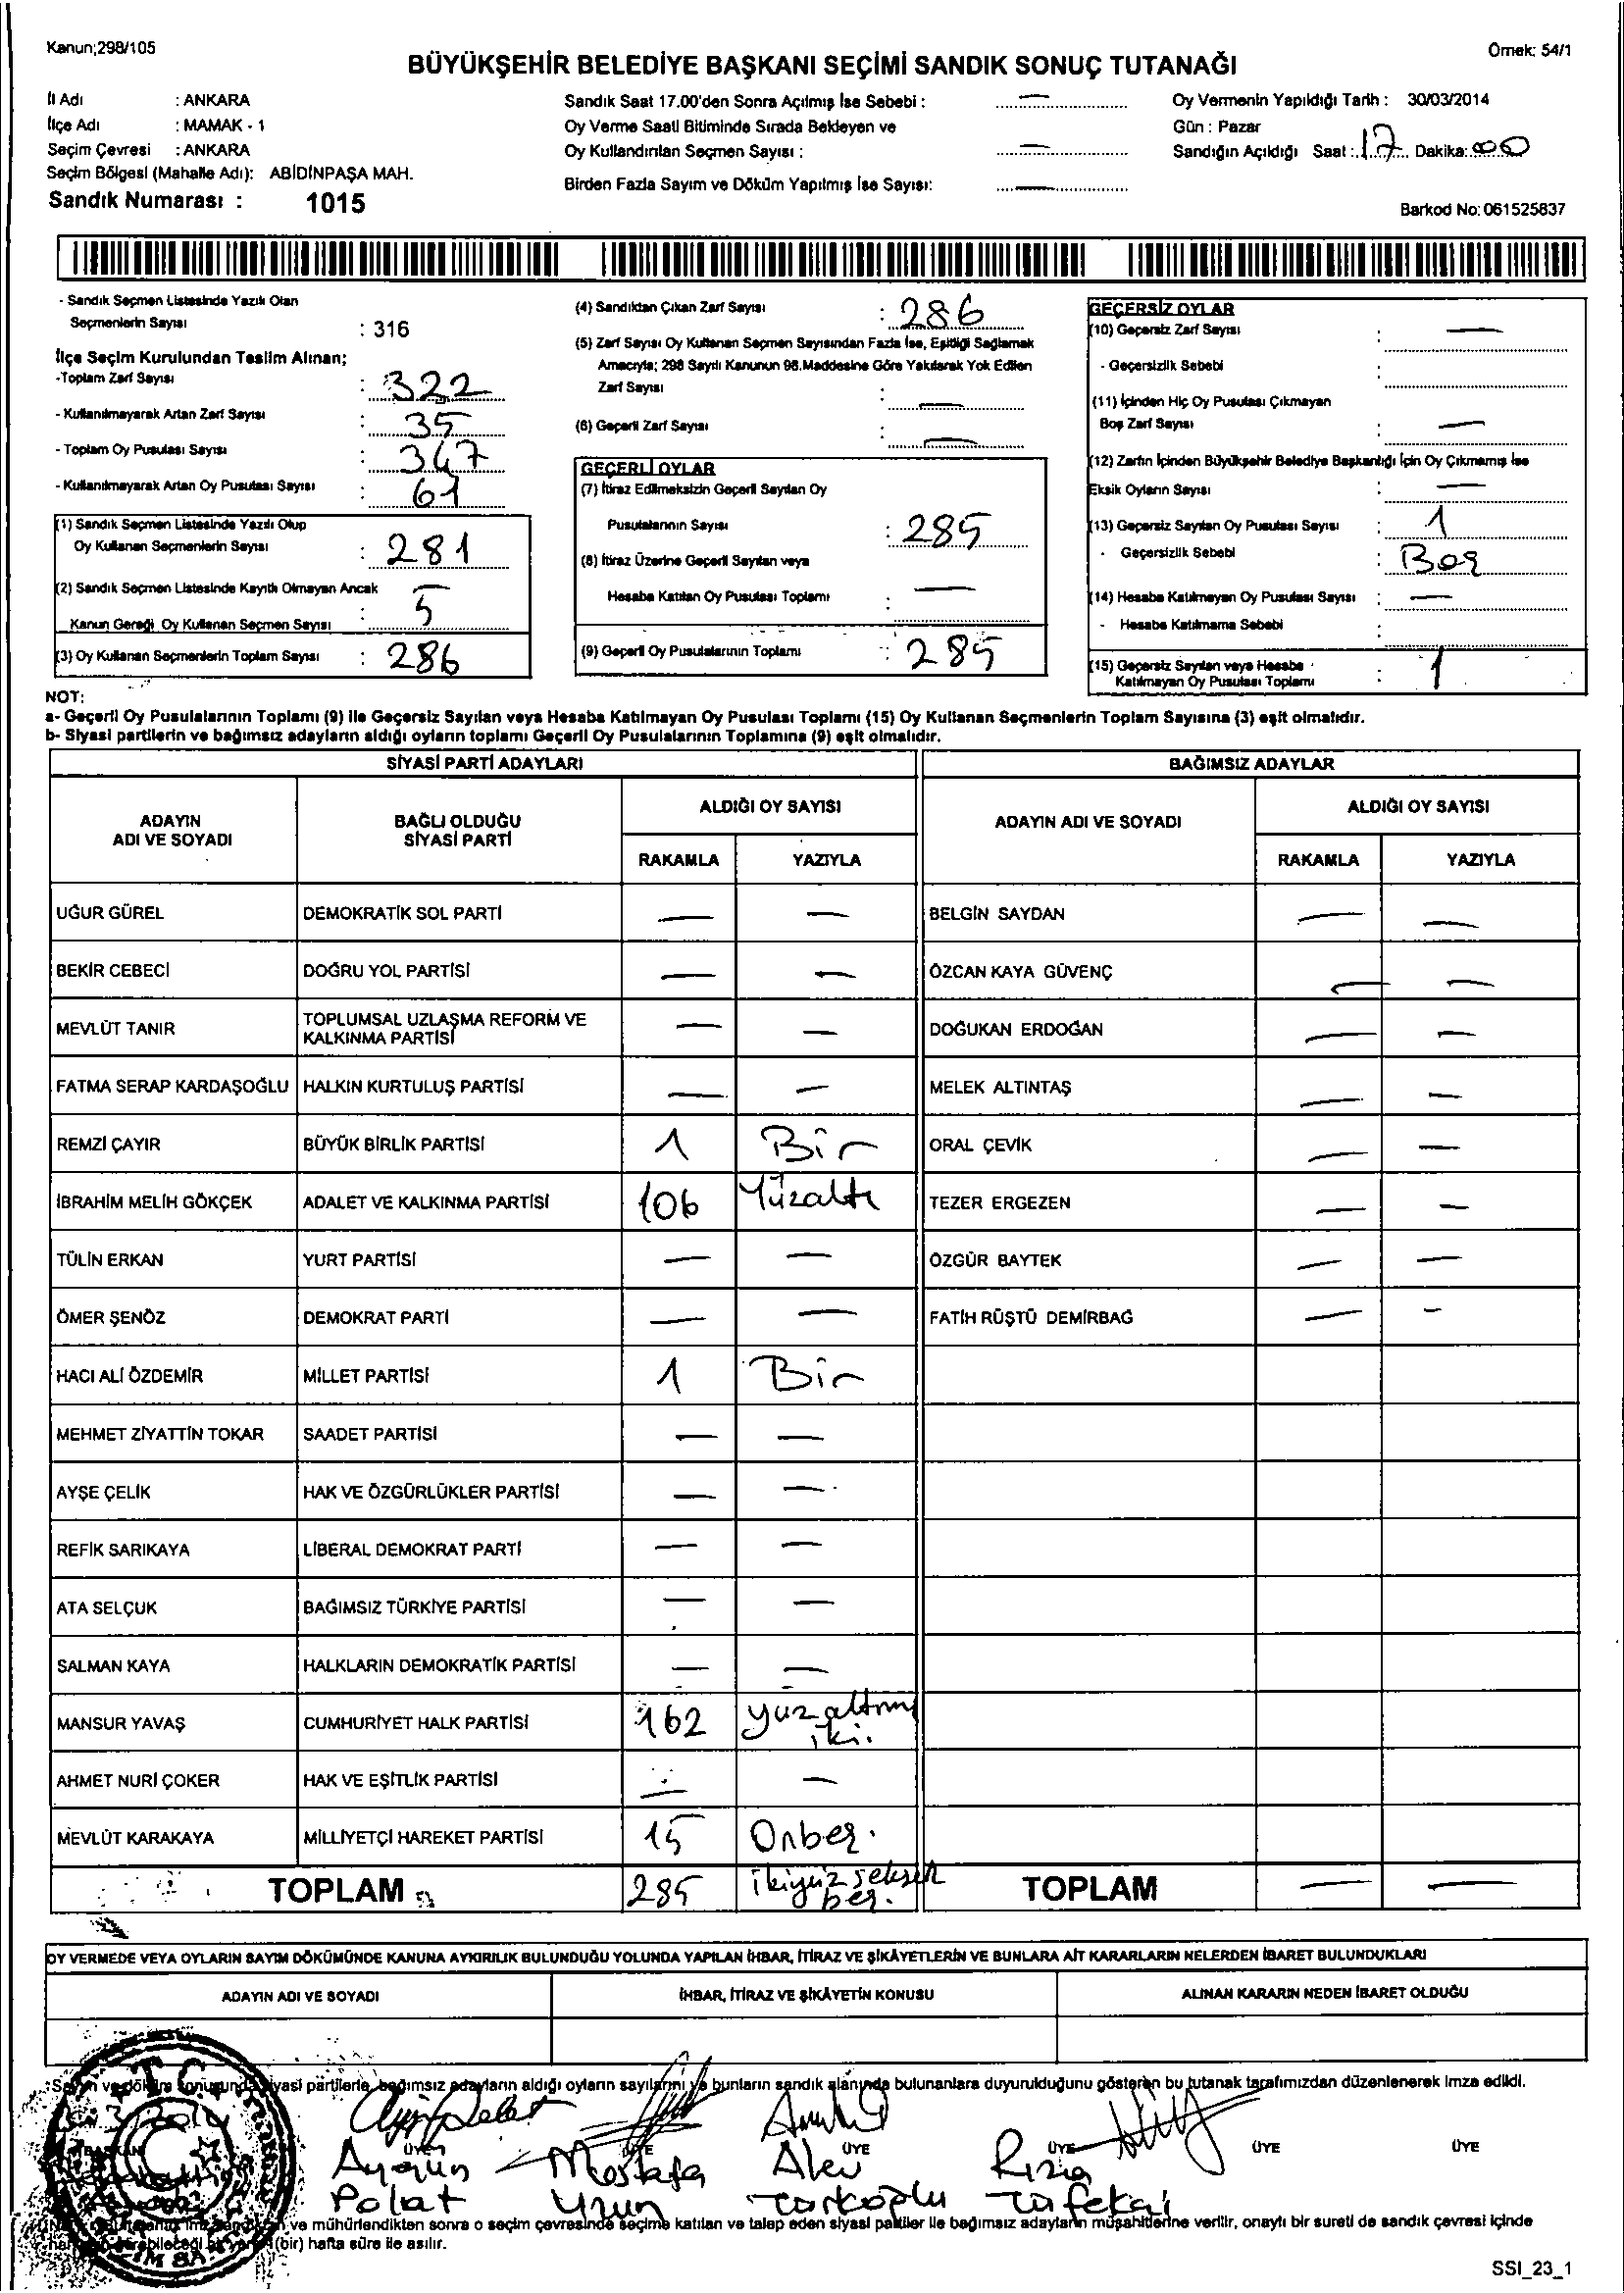 Kanun;298/105
Örnek: 54/1
BÜYÜKŞEHİR BELEDİYE BAŞKANI SEÇİMİ SANDIK SONUÇ TUTANAĞI
İl Adı : ANKARA
İlçe Adı : MAMAK - 1
Seçim Çevresi : ANKARA
Seçim Bölgesi (Mahalle Adı): ABİDİNPAŞA MAH.
Sandık Numarası : 1015
Sandık Saat 17.00'den Sonra Açılmış İse Sebebi : —
Oy Verme Saati Bitiminde Sırada Bekleyen ve
Oy Kullandırılan Seçmen Sayısı : —
Birden Fazla Sayım ve Döküm Yapılmış İse Sayısı: —
Oy Vermenin Yapıldığı Tarih : 30/03/2014
Gün : Pazar
Sandığın Açıldığı Saat : 17 Dakika: 00
Barkod No: 061525837
- Sandık Seçmen Listesinde Yazılı Olan
Seçmenlerin Sayısı : 316
İlçe Seçim Kurulundan Teslim Alınan;
-Toplam Zarf Sayısı : 322
- Kullanılmayarak Artan Zarf Sayısı : 35
- Toplam Oy Pusulası Sayısı : 347
- Kullanılmayarak Artan Oy Pusulası Sayısı : 61
(1) Sandık Seçmen Listesinde Yazılı Olup
Oy Kullanan Seçmenlerin Sayısı : 281
(2) Sandık Seçmen Listesinde Kayıtlı Olmayan Ancak
Kanun Gereği Oy Kullanan Seçmen Sayısı : 5
(3) Oy Kullanan Seçmenlerin Toplam Sayısı : 286
(4) Sandıktan Çıkan Zarf Sayısı : 286
(5) Zarf Sayısı Oy Kullanan Seçmen Sayısından Fazla İse, Eşitliği Sağlamak
Amacıyla; 298 Sayılı Kanunun 98.Maddesine Göre Yakılarak Yok Edilen
Zarf Sayısı : —
(6) Geçerli Zarf Sayısı : —
GEÇERLİ OYLAR
(7) İtiraz Edilmeksizin Geçerli Sayılan Oy
Pusulalarının Sayısı : 285
(8) İtiraz Üzerine Geçerli Sayılan veya
Hesaba Katılan Oy Pusulası Toplamı : —
(9) Geçerli Oy Pusulalarının Toplamı : 285
GEÇERSİZ OYLAR
(10) Geçersiz Zarf Sayısı : —
- Geçersizlik Sebebi :
(11) İçinden Hiç Oy Pusulası Çıkmayan
Boş Zarf Sayısı : —
(12) Zarfın İçinden Büyükşehir Belediye Başkanlığı İçin Oy Çıkmamış İse
Eksik Oyların Sayısı : —
(13) Geçersiz Sayılan Oy Pusulası Sayısı : 1
- Geçersizlik Sebebi : Boş
(14) Hesaba Katılmayan Oy Pusulası Sayısı : —
- Hesaba Katılmama Sebebi :
(15) Geçersiz Sayılan veya Hesaba
Katılmayan Oy Pusulası Toplamı : 1
NOT:
a- Geçerli Oy Pusulalarının Toplamı (9) ile Geçersiz Sayılan veya Hesaba Katılmayan Oy Pusulası Toplamı (15) Oy Kullanan Seçmenlerin Toplam Sayısına (3) eşit olmalıdır.
b- Siyasi partilerin ve bağımsız adayların aldığı oyların toplamı Geçerli Oy Pusulalarının Toplamına (9) eşit olmalıdır.
SİYASİ PARTİ ADAYLARI BAĞIMSIZ ADAYLAR
ADAYIN ADI VE SOYADI BAĞLI OLDUĞU SİYASİ PARTİ ALDIĞI OY SAYISI ADAYIN ADI VE SOYADI ALDIĞI OY SAYISI
RAKAMLA YAZIYLA RAKAMLA YAZIYLA
UĞUR GÜREL DEMOKRATİK SOL PARTİ — — BELGİN SAYDAN — —
BEKİR CEBECİ DOĞRU YOL PARTİSİ — — ÖZCAN KAYA GÜVENÇ — —
MEVLÜT TANIR TOPLUMSAL UZLAŞMA REFORM VE KALKINMA PARTİSİ — — DOĞUKAN ERDOĞAN — —
FATMA SERAP KARDAŞOĞLU HALKIN KURTULUŞ PARTİSİ — — MELEK ALTINTAŞ — —
REMZİ ÇAYIR BÜYÜK BİRLİK PARTİSİ 1 Bir ORAL ÇEVİK — —
İBRAHİM MELİH GÖKÇEK ADALET VE KALKINMA PARTİSİ 106 Yüzaltı TEZER ERGEZEN — —
TÜLİN ERKAN YURT PARTİSİ — — ÖZGÜR BAYTEK — —
ÖMER ŞENÖZ DEMOKRAT PARTİ — — FATİH RÜŞTÜ DEMİRBAĞ — —
HACI ALİ ÖZDEMİR MİLLET PARTİSİ 1 Bir
MEHMET ZİYATTİN TOKAR SAADET PARTİSİ — —
AYŞE ÇELİK HAK VE ÖZGÜRLÜKLER PARTİSİ — —
REFİK SARIKAYA LİBERAL DEMOKRAT PARTİ — —
ATA SELÇUK BAĞIMSIZ TÜRKİYE PARTİSİ — —
SALMAN KAYA HALKLARIN DEMOKRATİK PARTİSİ — —
MANSUR YAVAŞ CUMHURİYET HALK PARTİSİ 162 yüzaltmış iki.
AHMET NURİ ÇOKER HAK VE EŞİTLİK PARTİSİ — —
MEVLÜT KARAKAYA MİLLİYETÇİ HAREKET PARTİSİ 15 Onbeş.
TOPLAM 285 ikiyüz seksen beş. TOPLAM — —
OY VERMEDE VEYA OYLARIN SAYIM DÖKÜMÜNDE KANUNA AYKIRILIK BULUNDUĞU YOLUNDA YAPILAN İHBAR, İTİRAZ VE ŞİKÂYETLERİN VE BUNLARA AİT KARARLARIN NELERDEN İBARET BULUNDUKLARI
ADAYIN ADI VE SOYADI İHBAR, İTİRAZ VE ŞİKÂYETİN KONUSU ALINAN KARARIN NEDEN İBARET OLDUĞU
Sayım ve döküm sonucunda siyasi partilerle, bağımsız adayların aldığı oyların sayılarını ve bunların sandık alanında bulunanlara duyurulduğunu gösteren bu tutanak tarafımızdan düzenlenerek imza edildi.
T.C.
BAŞKAN ÜYE ÜYE ÜYE ÜYE ÜYE ÜYE
Aygün Polat Mustafa Uzun Alev Türkoğlu Rıza Tüfekçi
ve mühürlendikten sonra o seçim çevresinde seçime katılan ve talep eden siyasi partiler ile bağımsız adayların müşahitlerine verilir, onaylı bir sureti de sandık çevresi içinde
(bir) hafta süre ile asılır.
SSI_23_1